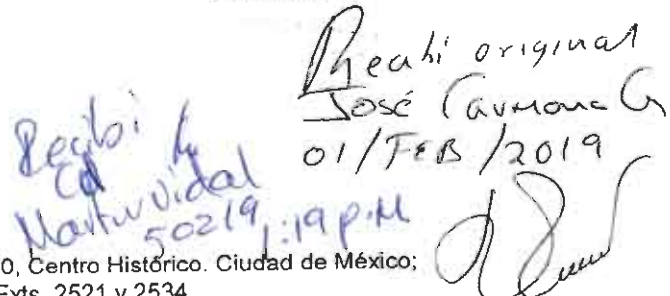 Recibi original
José Carmona G
01/FEB/2019
Recibi
Cd
Martin Vidal
50219 1:19 p.M
0, Centro Histórico. Ciudad de México;
Exts. 2521 y 2534